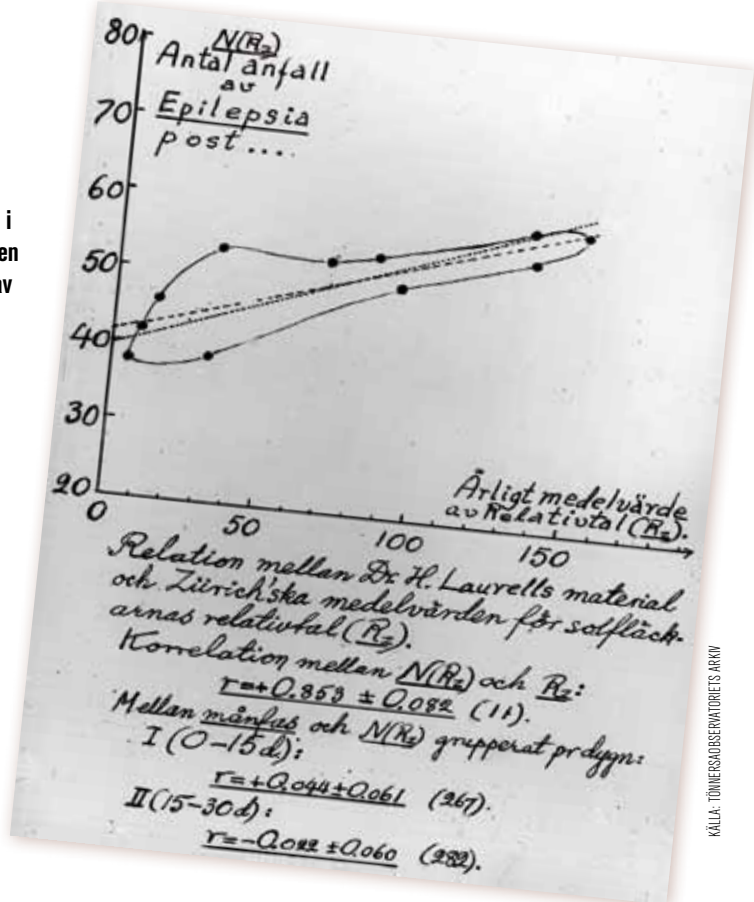 i
en
av
80
N(R_z)
Antal anfall
av
70
Epilepsia
post....
60
50
40
30
20
0
50
100
150
Årligt medelvärde
av Relativtal (R_z).
Relation mellan Dr H. Laurells material
och Zürich'ska medelvärden för solfläck-
arnas relativtal (R_z).
Korrelation mellan N(R_z) och R_z:
r=+0.853 ± 0.082 (11).
Mellan månfas och N(R_z) grupperat pr dygn:
I (0-15d):
r=+0.044±0.061 (267).
II (15-30d):
r=-0.022 ±0.060 (282).
KÄLLA: TÖNNERSAOBSERVATORIETS ARKIV